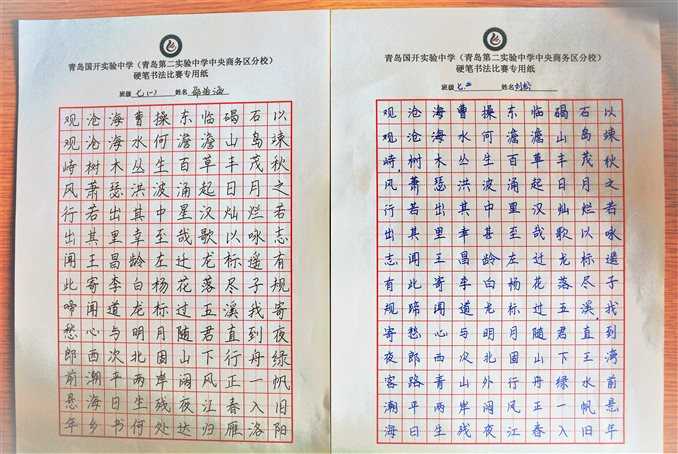 青岛国开实验中学（青岛第二实验中学中央商务区分校）
硬笔书法比赛专用纸
班级 七(一) 姓名
观沧海曹操东临碣石以
观沧海水何澹澹山岛竦
峙树木丛生百草丰茂秋
风萧瑟洪波涌起日月之
行若出其中星汉灿烂若
出其里幸至哉歌以咏志
闻王昌龄左迁龙标遥有
此寄李白杨花落尽子规
啼闻道龙标过五溪我寄
愁心与明月随君直到夜
郎西次北固山下行舟绿
前潮平两岸阔风正一帆
悬海日生残夜江春入旧
年乡书何处达归雁洛阳
青岛国开实验中学（青岛第二实验中学中央商务区分校）
硬笔书法比赛专用纸
班级 七.二 姓名
观沧海曹操东临碣石以
观沧海水何澹澹山岛竦
峙树木丛生百草丰茂秋
风萧瑟洪波涌起日月之
行若出其中里汉灿烂若
出其里幸甚至哉歌以咏
志闻王昌龄左迁龙标遥
有此寄李白杨花落尽子
规啼闻道龙标过五溪我
寄愁心与明月随君直到
夜郎西次北固山下王湾
客路青山外行舟绿水前
潮平两岸阔风正一帆悬
海日生残夜江春入旧年